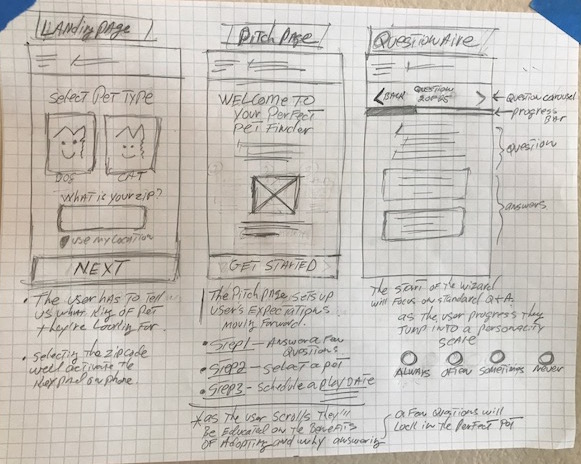 LANDING PAGE
SELECT PET TYPE
DOG
CAT
WHAT IS YOUR ZIP?
USE MY LOCATION
NEXT
• THE USER HAS TO TELL
US WHAT KIND OF PET
THEY'RE LOOKING FOR.
• SELECTING THE ZIPCODE
WILL ACTIVATE THE
KEYPAD ON PHONE.
PITCH PAGE
WELCOME TO
YOUR PERFECT
PET FINDER
GET STARTED
THE PITCH PAGE SETS UP
USER'S EXPECTATIONS
MOVING FORWARD.
• STEP 1 - ANSWER A FEW
QUESTIONS
• STEP 2 - SELECT A PET
• STEP 3 - SCHEDULE A PLAY DATE
* AS THE USER SCROLLS THEY'LL
BE EDUCATED ON THE BENEFITS
OF ADOPTING AND WHY ANSWERING
A FEW QUESTIONS WILL
LOCK IN THE PERFECT PET
QUESTIONAIRE
BACK
QUESTION
2 OF 25
QUESTION CAROUSEL
PROGRESS
BAR
QUESTION
ANSWERS
THE START OF THE WIZARD
WILL FOCUS ON STANDARD Q&A.
AS THE USER PROGRESS THEY
JUMP INTO A PERSONALITY
SCALE
ALWAYS
OFTEN
SOMETIMES
NEVER